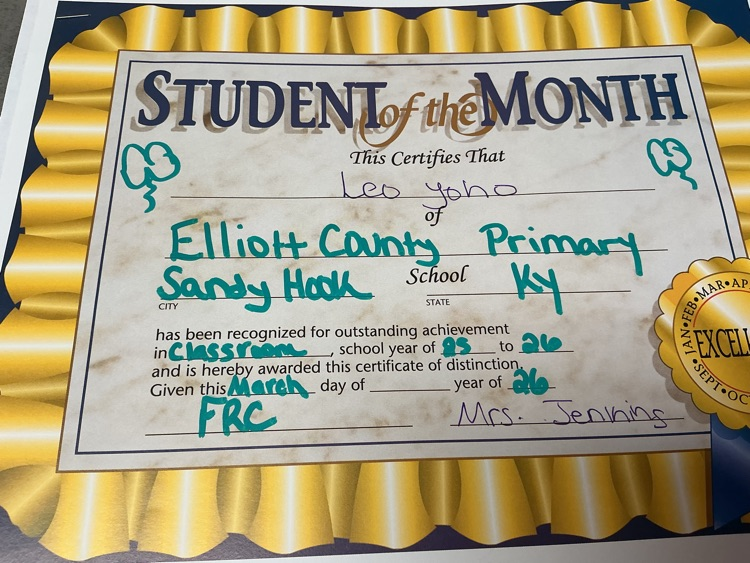 STUDENT of the MONTH
This Certifies That
Leo Yoho
of
Elliott County Primary
School
Sandy Hook Ky
CITY STATE
has been recognized for outstanding achievement
in Classroom, school year of 25 to 26
and is hereby awarded this certificate of distinction.
Given this March day of ________ year of 26
FRC Mrs. Jennings
JAN•FEB•MAR•AP
EXCELL
•SEPT•OC